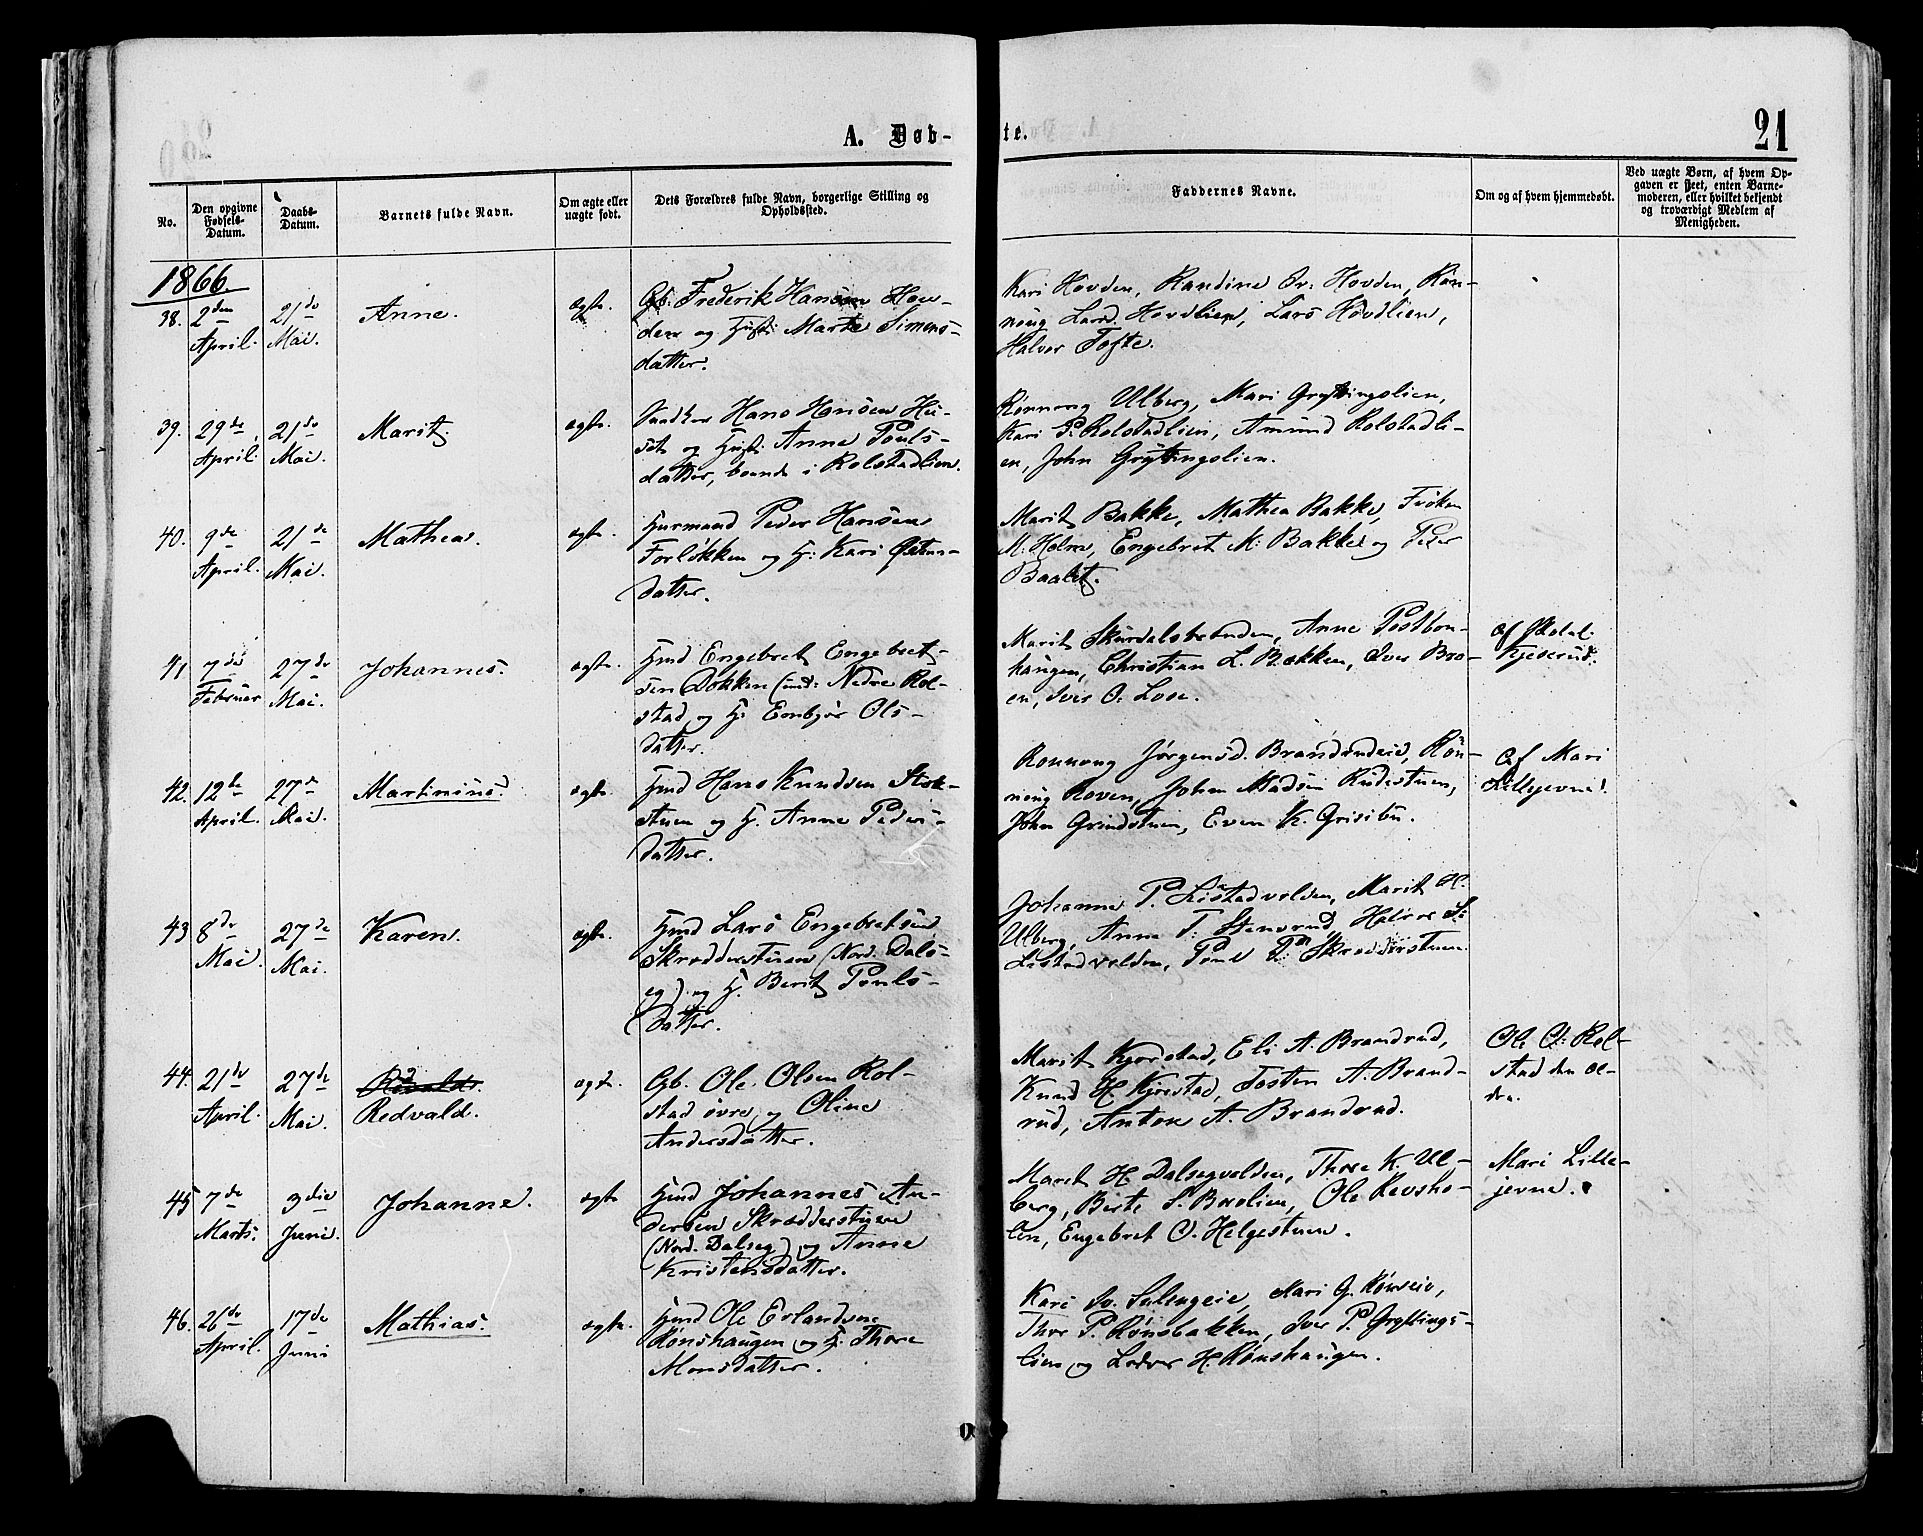 A. Døb-
te.
21
No.
Den opgivne Fødsels-Datum.
Daabs-Datum.
Barnets fulde Navn.
Om ægte eller uægte født.
Dets Forældres fulde Navn, borgerlige Stilling og Opholdssted.
Faddernes Navne.
Om og af hvem hjemmedøbt.
Ved uægte Børn, af hvem Op-
gaven er skeet, enten Barne-
moderen, eller hvilket bekjendt
og troværdigt Medlem af
Menigheden.
1866.
38. 2den April. 21de Mai. Anne. ægte.
Gb. Frederik Hansen Hov-
den og Hust: Marte Simens-
datter.
Kari Hovden, Randine Hovden, Røn-
noug Hovdlien, Lars Hovdlien,
Halvor Tofte.
39. 29de April. 21de Mai. Marit. ægte.
Hans Hansen
og Hust: Anne Pouls-
datter, boende i Rolstadlien.
Rønnoug Ulberg, Mari Gryttingslien,
Kari P. Rolstadlien, Amund Rolstadli-
en, John Gryttingslien.
40. 9de April. 21de Mai. Mathea. ægte.
Huusmand Peder Hansen
Forløkken og H. Kari
datter.
Marit Bakke, Mathea Bakke, Frøken
M. Holm, Engebret M. Bakke og Peder
41 7de Februar 27de Mai. Johannes. ægte.
Hmd Engebret Engebret-
sen Dokken (und: Nedre Rol-
stad og H. Embjør Ols-
datter.
Marit Skurdalsbrænden, Anne
haugen, Christian L. Bækken, Iver Bro-
en, Iver O. Lose.
af
42. 12te April. 27de Mai. Martinius. ægte.
Hmd Hans Knudsen Stok-
stuen og H. Anne Peders-
datter.
Ronnoug Jørgensd. Brandrudeie, Røn-
noug Roven, John Madsen Rudestuen,
John Grindstuen, Even K. Grisibu.
af Mari
Lillejevne.
43 8de Mai. 27de Mai. Karen. ægte.
Hmd Lars Engebretsen
Skrædderstuen (Nord. Dals-
eg) og H. Berit Pouls-
datter.
Johanne P. Listadvolden, Marit
Ulberg, Anne T. Stensrud, Halvor S.
Listadvolden, Poul P. Skrædderstuen.
44. 21de April. 27de Mai. Redvald. ægte.
Gb. Ole Olsen Rol-
stad øvre, og Oline
Andersdatter.
Marit Kjorstad, Eli A. Brandrud,
Knud H. Kjorstad, Tosten A. Brand-
rud, Anton A. Brandrud.
Ole O. Rol-
stad den æl-
dre.
45 7de Marts. 3die Juni. Johanne. ægte
Hmd Johannes An-
dersen Skrædderstuen
(Nord. Dalseg) og Anne
Kristensdatter.
Marit H. Dalsegvolden, Thore K. Ul-
berg, Berte S. Brolien, Ole Revsho-
len, Engebret O. Helgestuen.
Mari Lille-
jevne.
46. 26de April. 17de Juni Mathias. ægte.
Hmd Ole Erlandsen
Rønshaugen og H. Thore
Monsdatter.
Kari Sulengeie, Mari G. Rønseie,
Thor P. Rønsbakken, Iver P. Gryttings-
lien og H. Rønshaugen.